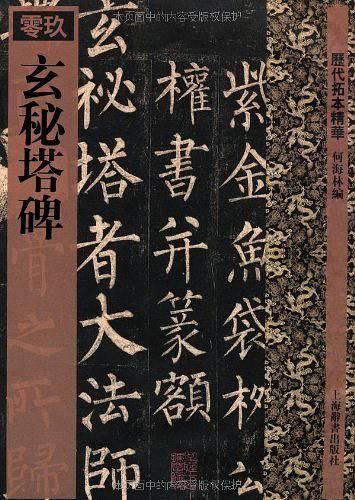 本页面中的内容受版权保护
零玖
玄秘塔碑
骨之所歸
紫金魚袋柳公
權書并篆額
玄祕塔者大法師
歷代拓本精華
何海林編
上海辭書出版社
本页面中的内容受版权保护